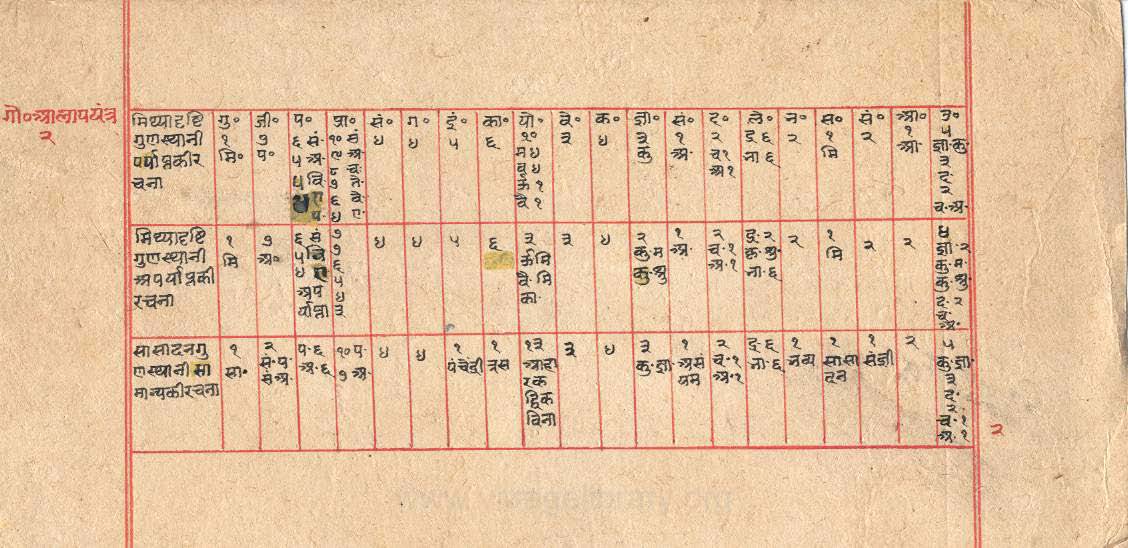 गो॰आलापयंत्र
२
मिथ्यादृष्टि
गुणस्थानी
पर्याप्तकीर
चना
गु॰
१
मि॰
जी॰
७
प॰
प॰
६ सं॰
५ अ॰
५ वि॰
४ ए॰
प॰
प्रा॰
१० सं
९ अ॰
८ च॰
७ ते॰
६ बे॰
४ ए॰
सं॰
४
ग॰
४
इं॰
५
का॰
६
यो॰
१०
म ४
व ४
औ १
वै १
वे॰
३
क॰
४
ज्ञा॰
३
कु
सं॰
१
अ॰
द॰
२
च१
अ१
ले॰
द्र ६
भा ६
भ॰
२
स॰
१
मि
सं॰
२
आ॰
१
आ॰
उ॰
५
ज्ञा॰कु॰
३
द॰
२
च॰अ॰
मिथ्यादृष्टि
गुणस्थानी
अपर्याप्तकी
रचना
१
मि
७
अ॰
६ सं
५ वि
४ ए
अप
र्याप्ता
७
७
६
५
४
३
४
४
५
६
३
औमि
वै॰मि
का॰
३
४
२
कु॰म
कु॰श्रु
१
अ॰
२
च॰१
अ॰१
द्र॰२
क॰शु॰
भा॰६
२
१
मि
२
२
४
ज्ञा॰२
कु॰म॰
कु॰श्रु॰
द॰२
च॰
अ॰
सासादनगु
णस्थानी सा
मान्यकीरचना
१
सा॰
२
सं॰प॰
सं॰अ॰
प॰६
अ॰६
१० प॰
७ अ॰
४
४
१
पंचेंद्री
१
त्रस
१३
आहा
रक
द्विक
विना
३
४
३
कु॰ज्ञा॰
१
असं
यम
२
च॰१
अ॰१
द्र॰६
भा॰६
१
भव्य
१
सासा
दन
१
संज्ञी
२
५
कु॰ज्ञा॰
३
द॰
२
च॰१
अ॰१
२